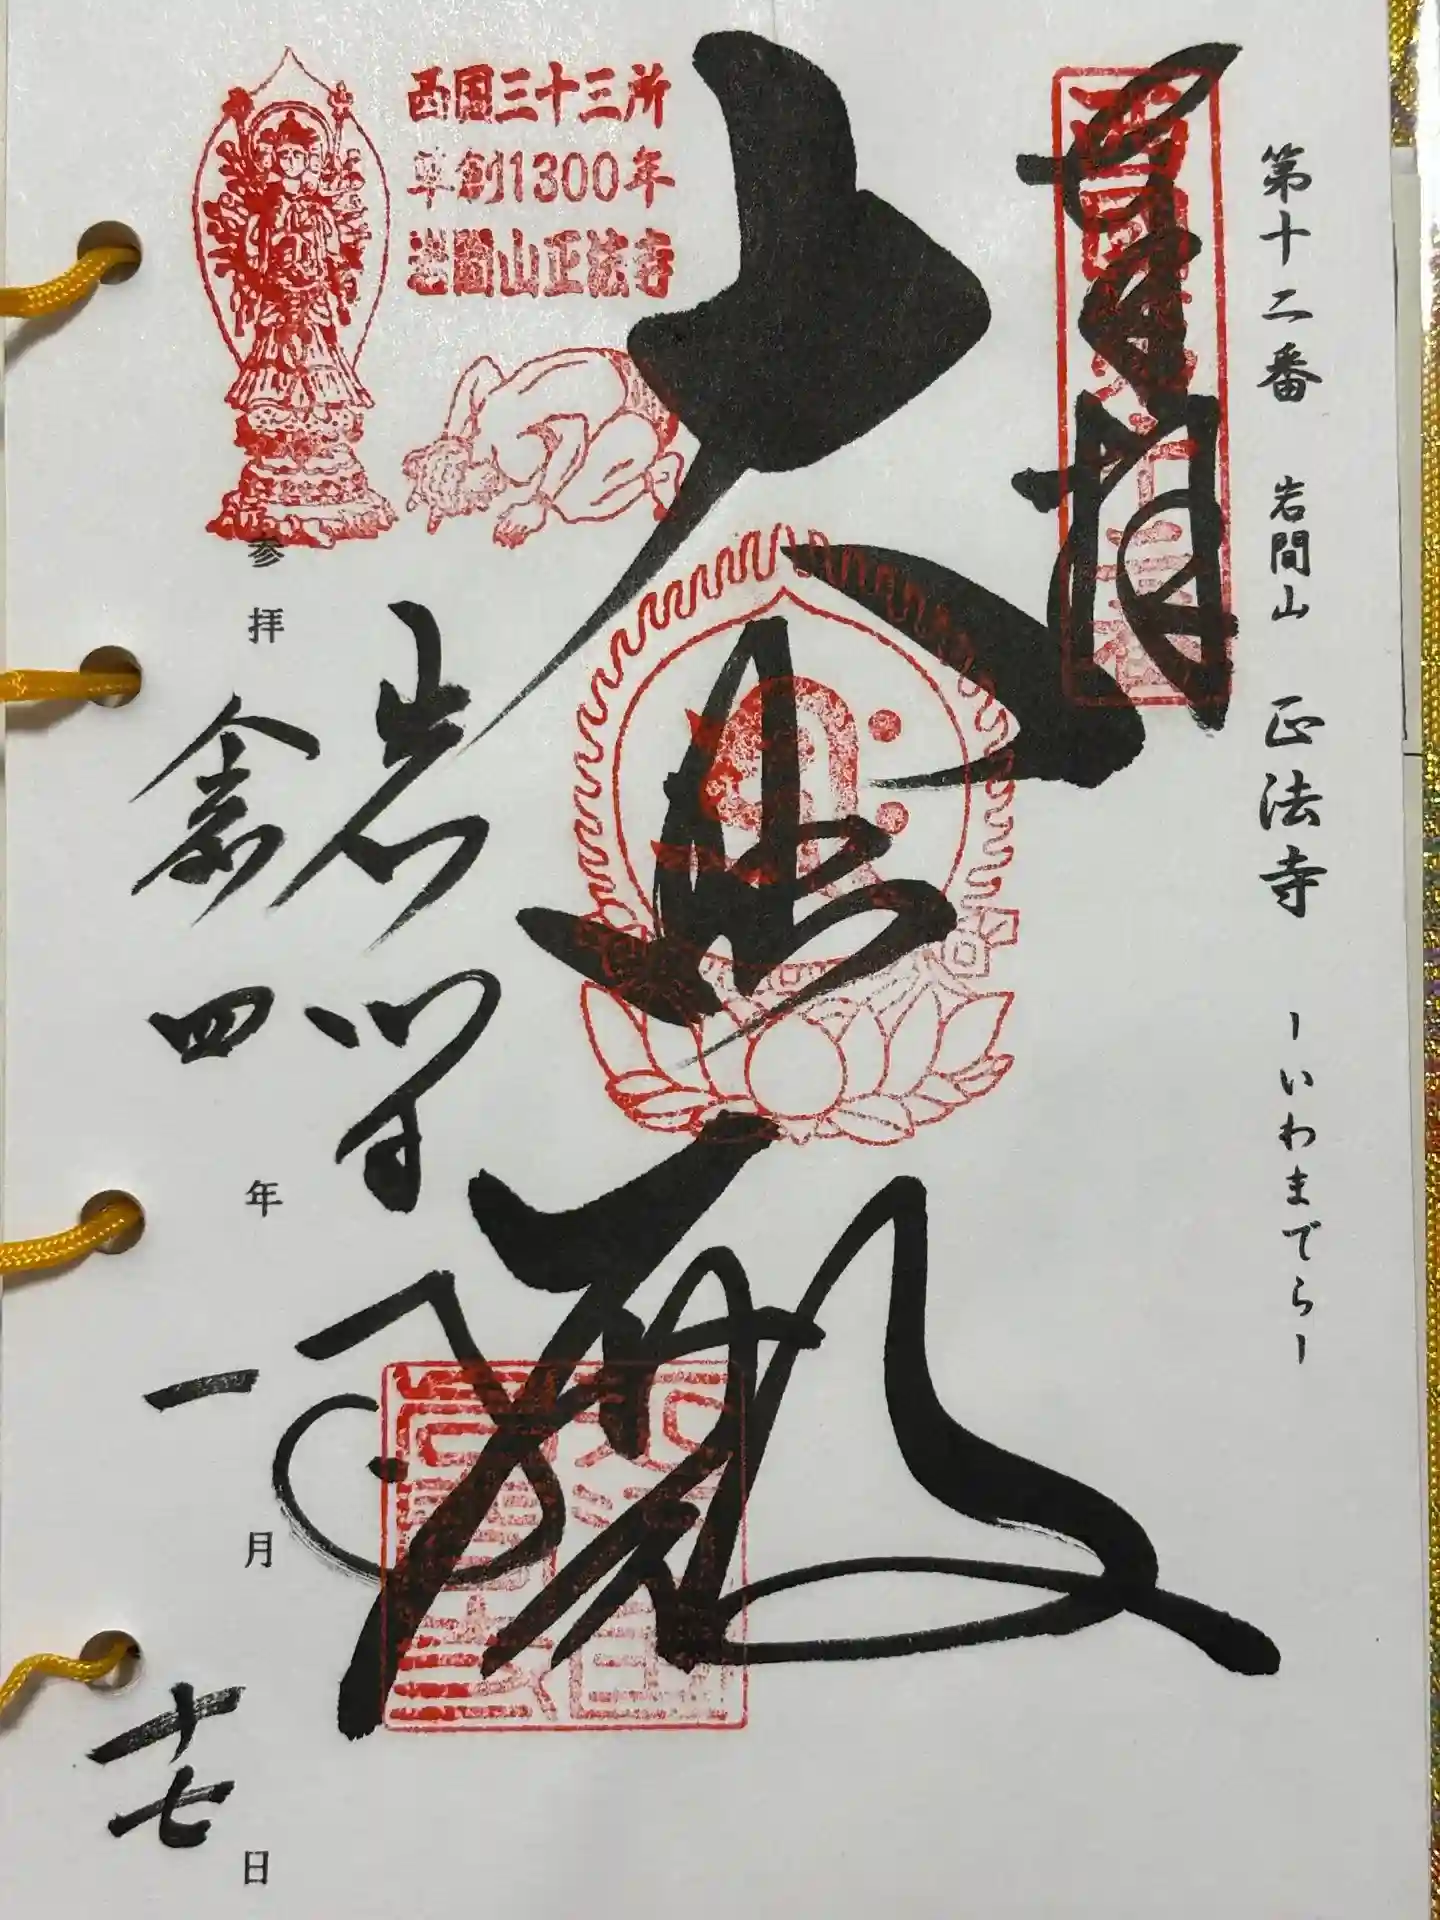 第十二番 岩間山 正法寺 ーいわまでらー
奉拝
大悲殿
西国三十三所
草創1300年
岩間山正法寺
岩間寺
参拝 令和四年一月十七日